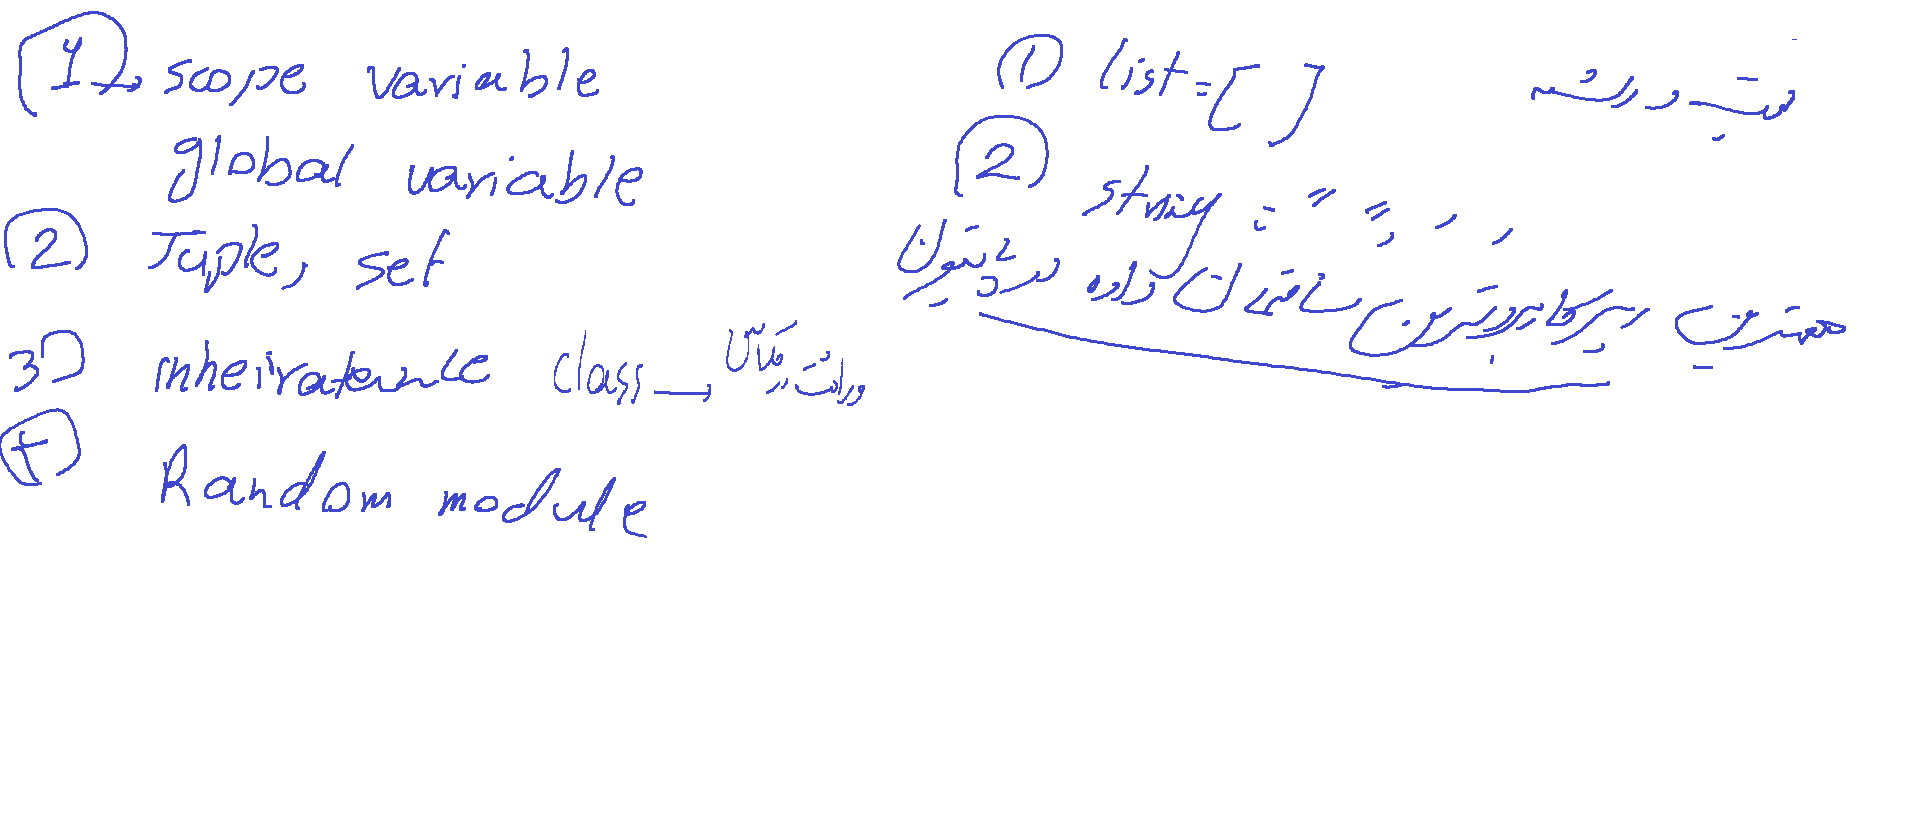 1 → scope variable
global variable
2 Tuple, set
3 inheiratence class → وراثت در کلاس
4 Random module
1 list = [ ]
لیست و رشته
2 string = " ", ' '
مهمترین و پرکاربردترین ساختمان داده در پایتون